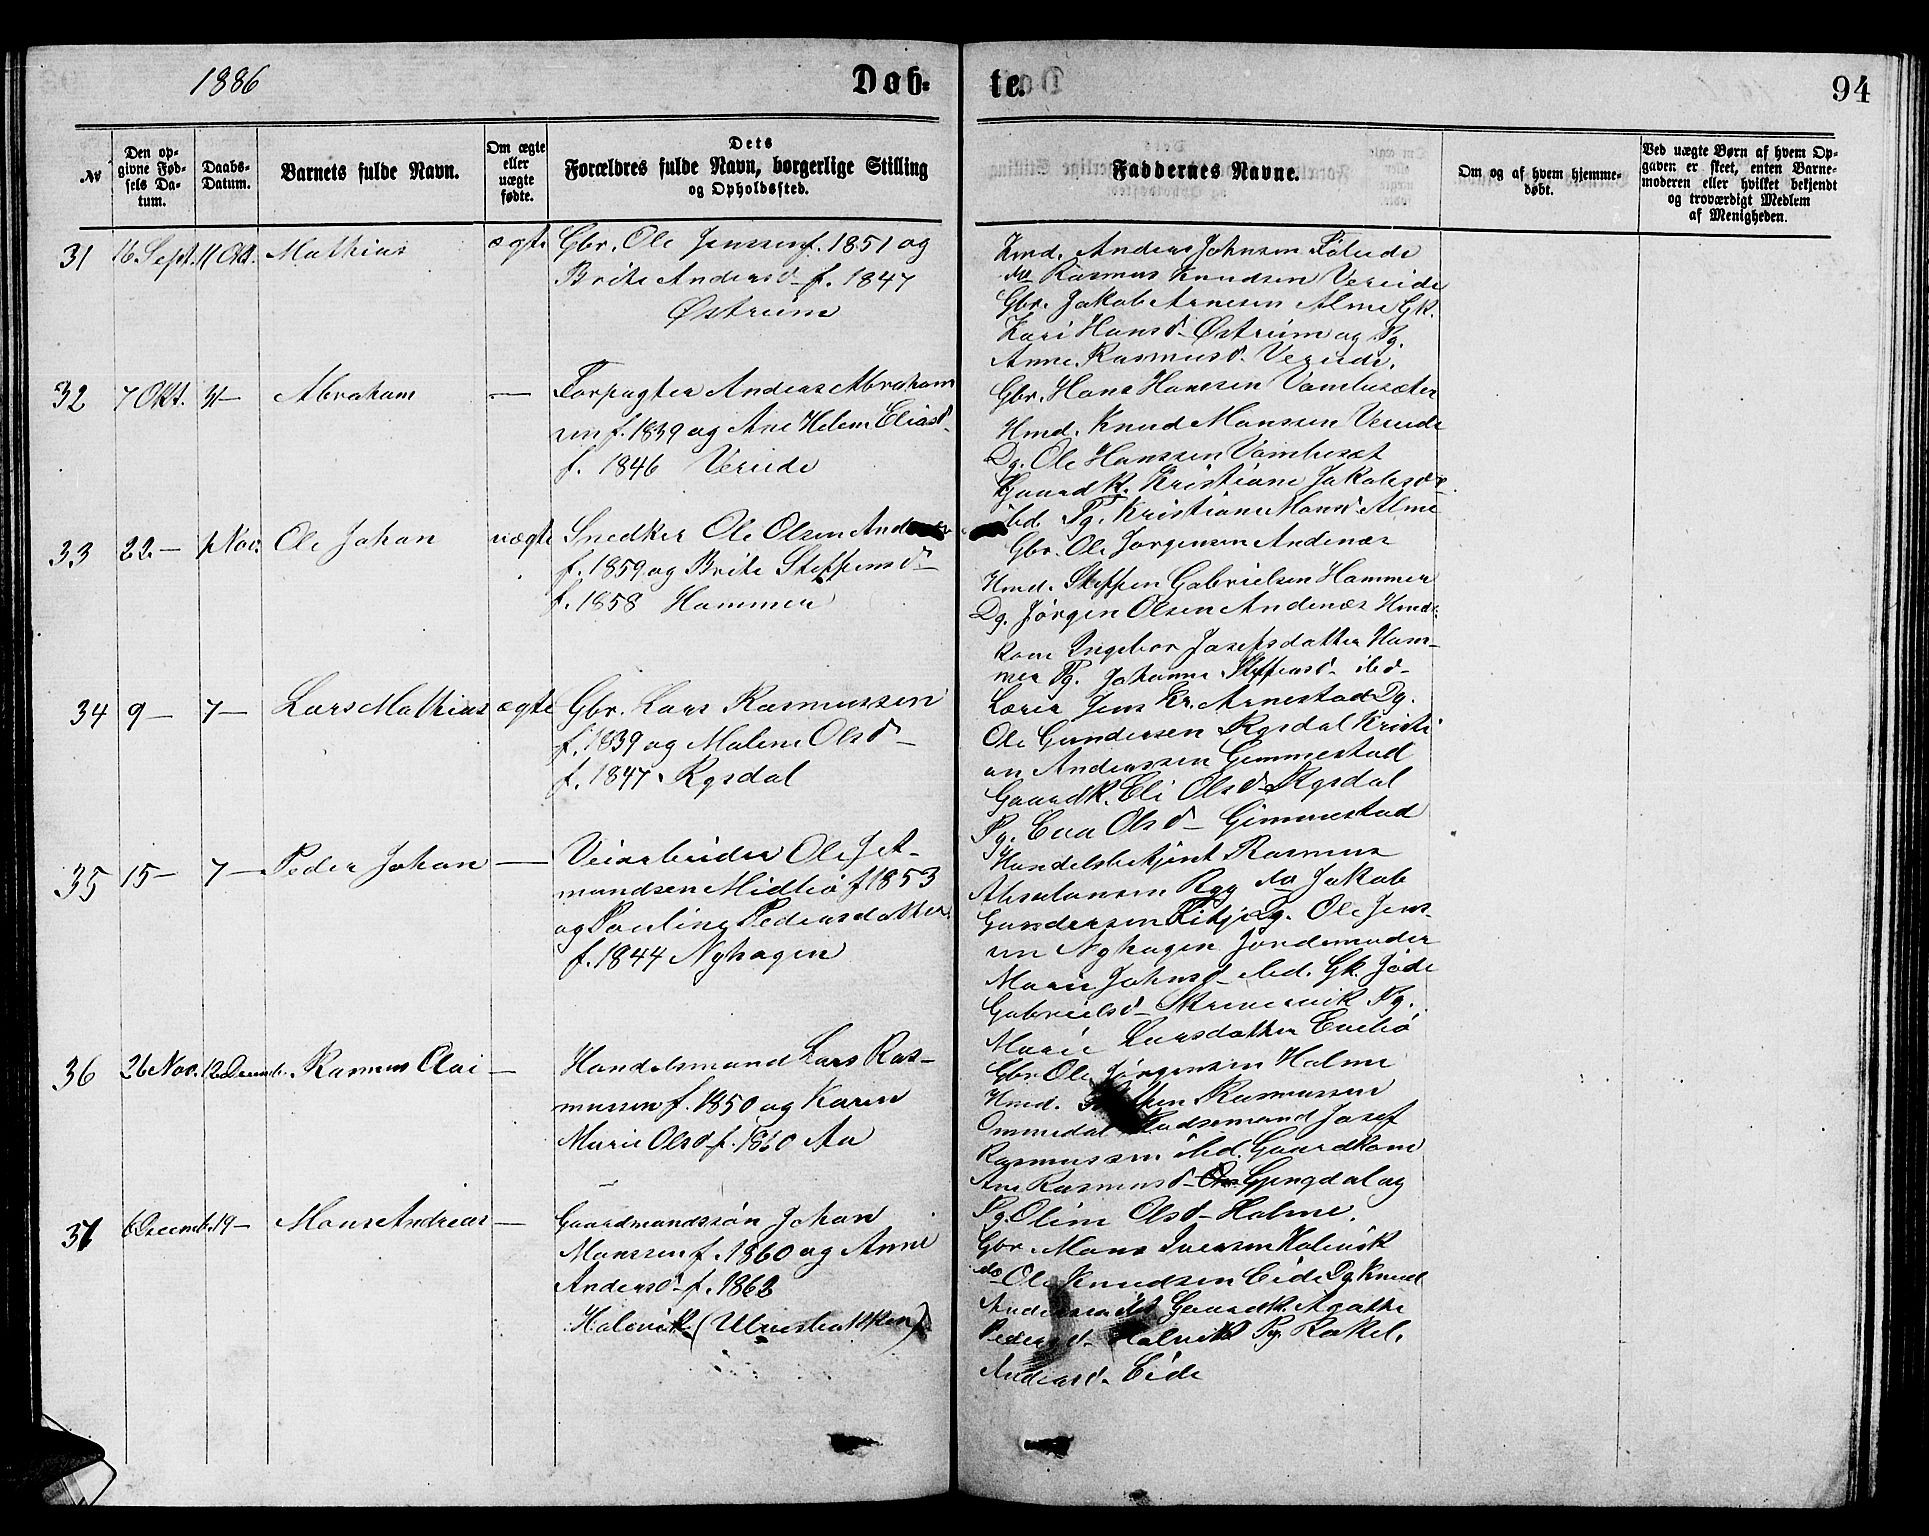 1886
Døb-
te.
94
№
Den op-
givne Fød-
sels Da-
tum.
Daabs-
Datum.
Barnets fulde Navn.
Om ægte
eller
uægte
fødte.
Dets
Forældres fulde Navn, borgerlige Stilling
og Opholdssted.
Faddernes Navne.
Om og af hvem hjemme-
døbt.
Ved uægte Børn af hvem Op-
gaven er skeet, enten Barne-
moderen eller hvilket bekjendt
og troværdigt Medlem
af Menigheden.
31 16 Sept. 11 Okt. Mathias ægte
Gbr. Ole Jenssen f. 1851 og
Brite Andersd- f. 1847
Østreim
Kmd. Anders Johnsen
do Rasmus Knudsen Vereide
Gbr. Jakob Arnesen Alme Gk.
Kari Hansd- Østreim og Pg.
Anne Rasmusd. Vereide.
32 7 Okt. 31- Abraham —
Forpagter Andreas Abraham
sen f. 1839 og Ane Helene Eliasd-
f. 1846 Vereide
Gbr. Hans Hansen Vambesæter
Hmd. Knud Monssen Vereide
Dg. Ole Hanssen Vambesæt
Gaardk. Kristiane Jakobsd-
ibd. Pg. Kristiane Monsd- Alme
33 22- 1 Nov. Ole Johan uægte
Snedker Ole Olsen
f. 1859 og Brite Steffensd-
f. 1858 Hammer
Gbr. Ole Jørgensen Andenæs
Hmd. Steffen Gabrielsen Hammer
Dg. Jørgen Olsen Andenæs Hmds-
kone Ingebor Josefsdatter Ham-
mer Pg. Johanne Steffensd- ibd-
34 9- 7- Lars Mathias ægte
Gbr. Lars Rasmussen
f. 1839 og Malene Olsd-
f. 1847. Rysdal
Lærer Jens Kr. Arnestad Dg.
Ole Gundersen Rysdal Kristi
an Anderssen Gimmestad
Gaardk. Eli Olsd- Rysdal
Pg. Eva Olsd- Gimmestad
35 15- 7- Peder Johan —
Veiarbeider Ole Jet-
mundsen Midtbø f 1853
og Pouline Pedersdatter
f. 1844 Nyhagen
Handelsbetjent Rasmus
Absalonsen Rygg do Jakob
Gundersen Dg. Ole Jens-
sen Nyhagen Jordemoder
Marie Johnsd- ibid. Gk.
Gabrielsd- Pg.
Marie Larsdatter Evebø
36 26 Nov. 12 Decemb. Rasmus Olai —
Handelsmand Lars Ras-
mussen f. 1850 og Karen
Marie Olsd- f. 1860 Aa
Gbr. Ole Jørgensen Holme
Hmd. Rasmussen
Ommedal Josef
Rasmussen ibd. Gaardkone
Ane Rasmusd- Gjengdal og
Pg. Oline Olsd- Holme.
37 6 Decemb. 19- Mons Andreas —
Gaardmandssøn Johan
Monssen f. 1860 og Anne
Andersd- f. 1862
Holevik
Gbr. Mons Iversen Holevik
do Ole Knudsen Eide Dg. Knud
Andersen ibd Gaardk. Agathe
Pedersd- Holvik Pg. Rakel
Andersd. Eide